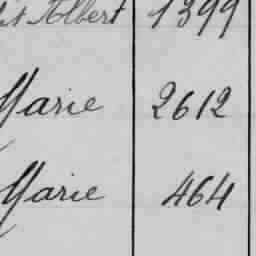 Albert 1399
Marie 2612
Marie 464